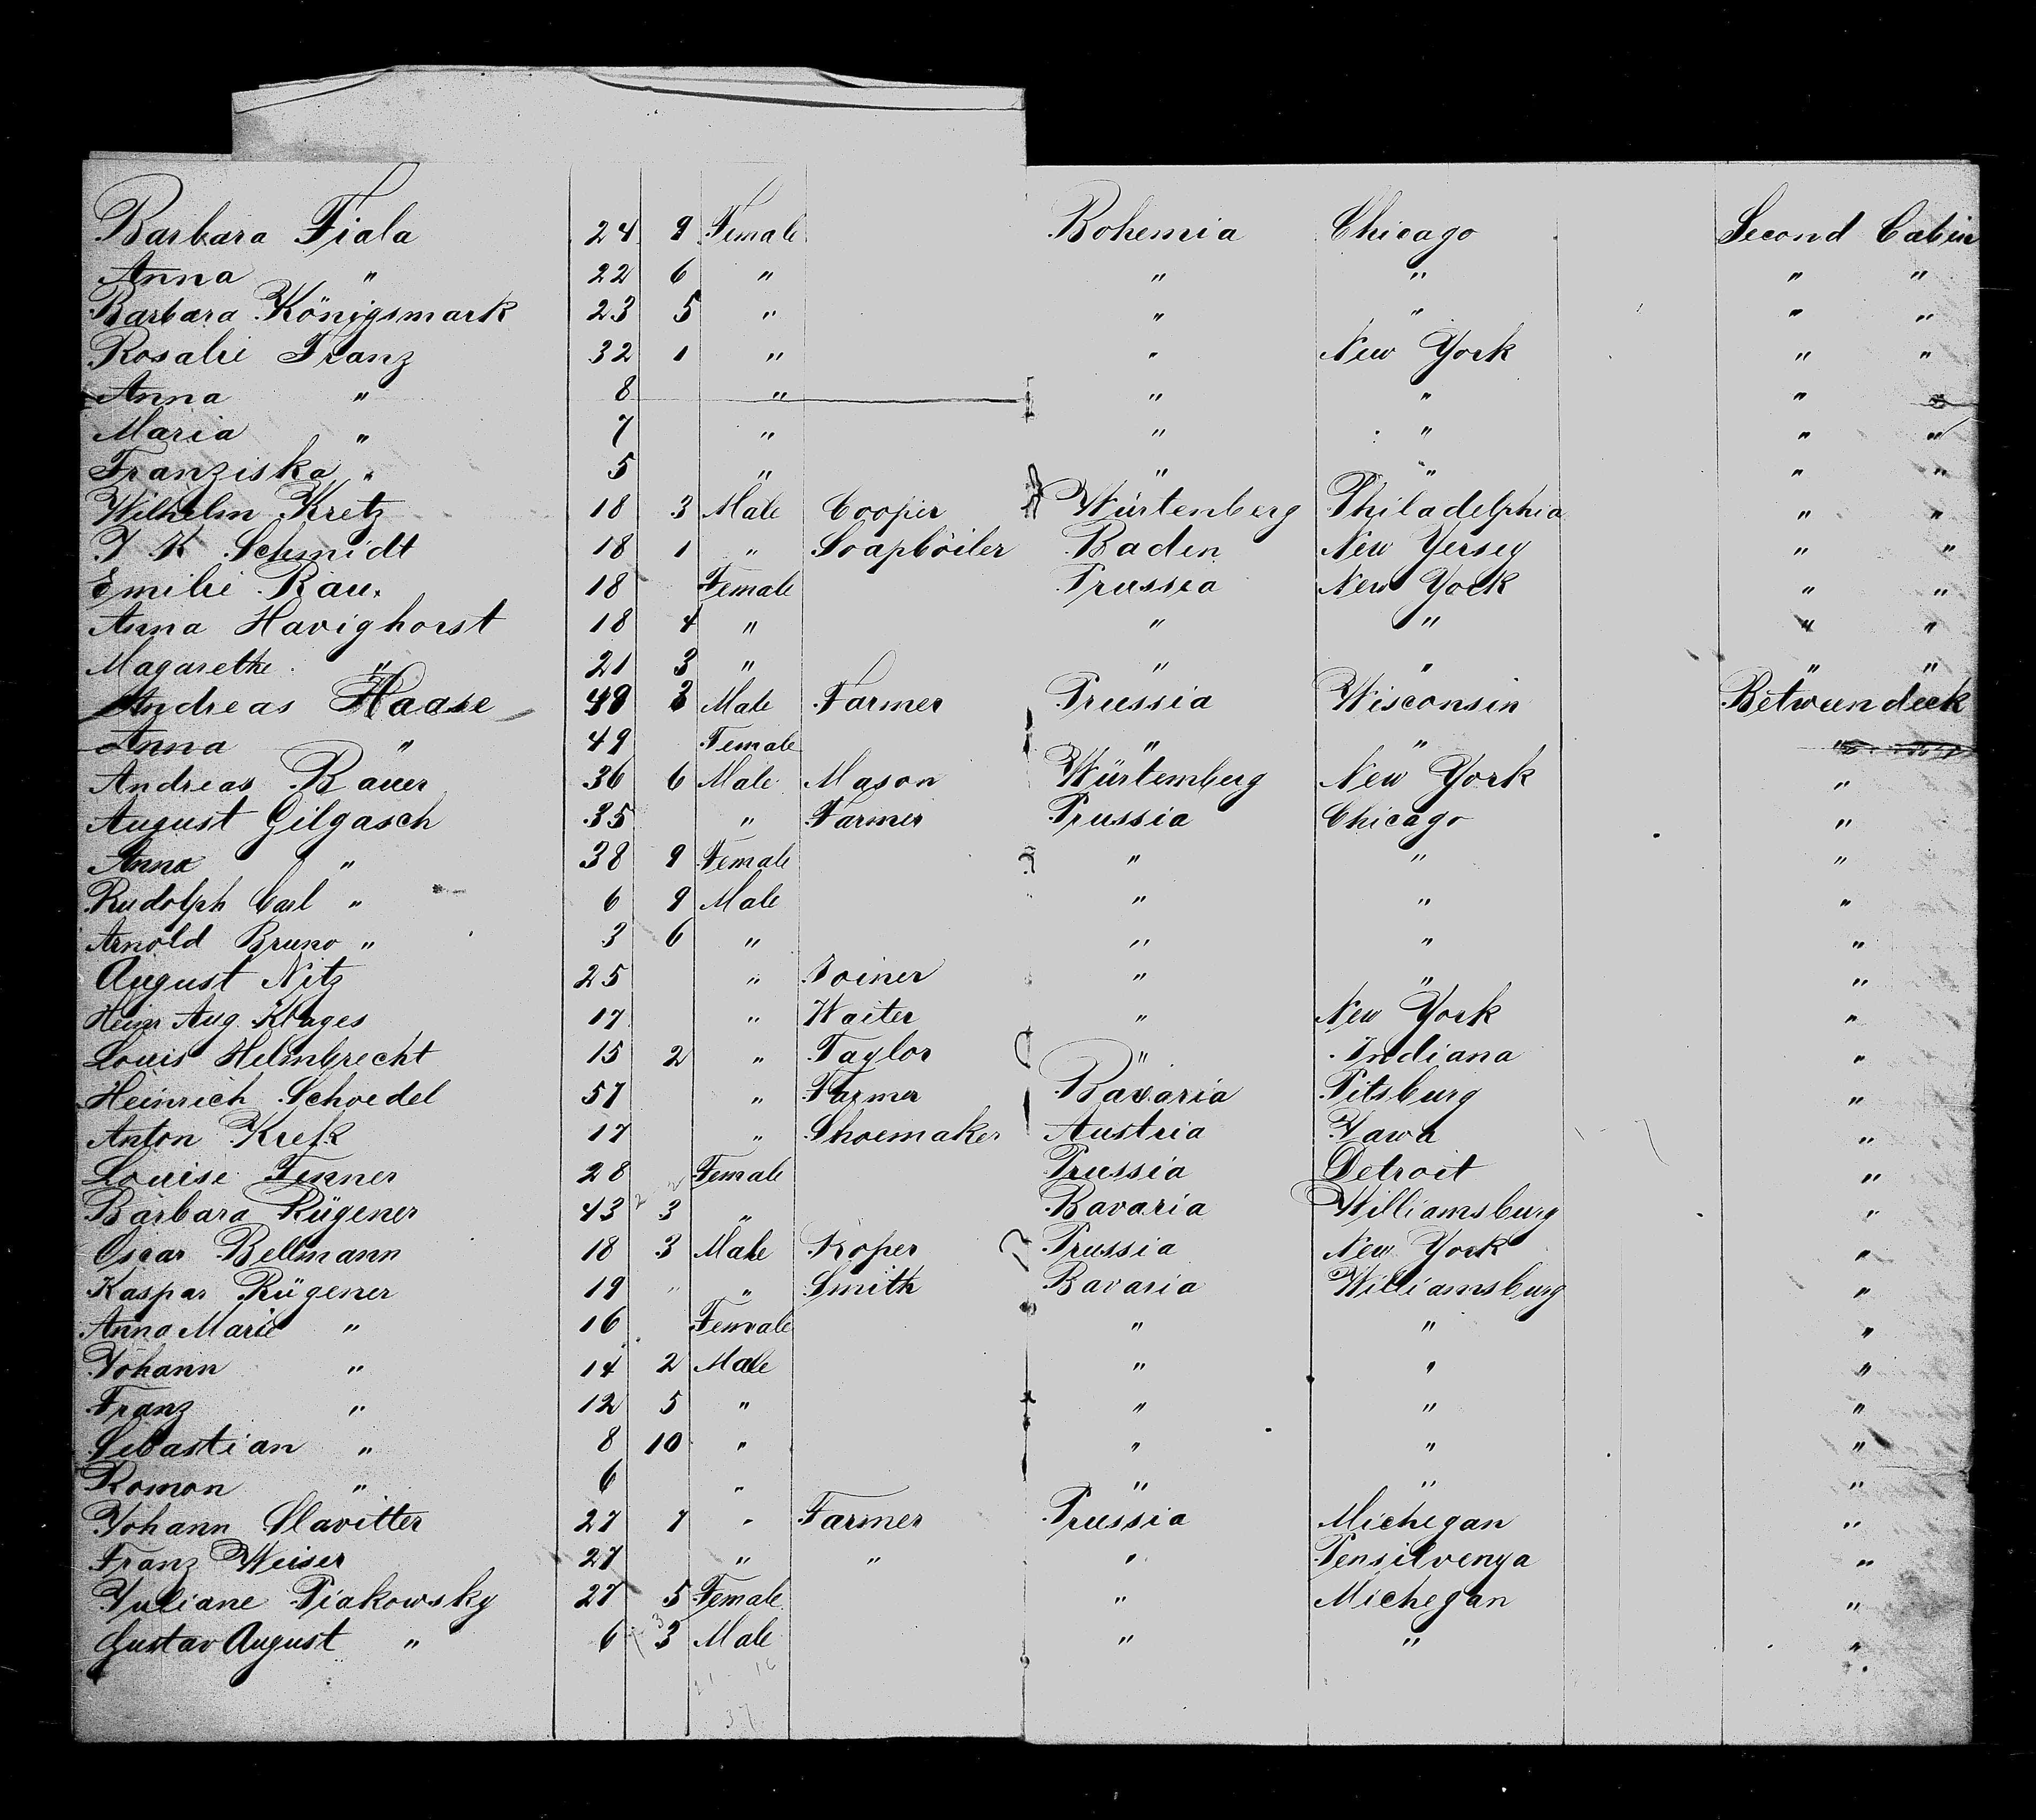 Barbara Fiala 24 9 Female Bohemia Chicago Second Cabin
Anna " 22 6 " " " " "
Barbara Königsmark 23 5 " " " " "
Rosalie Franz 32 1 " " New York " "
Anna " 8 " " " "
Maria " 7 " " " " "
Franziska " 5 " " " " "
Wilhelm Kretz 18 3 Male Cooper Würtenberg Philadelphia " "
J K Schmidt 18 1 " Soapböiler Baden New Yersey " "
Emilie Rau. 18 Female Prussia New York " "
Anna Havighorst 18 4 " " " " "
Magarethe " 21 3 " " " " "
Andreas Haase 49 3 Male Farmer Prussia Wisconsin Between deck
Anna " 49 Female " " "
Andreas Bauer 36 6 Male Mason Würtemberg New York "
August Gilgasch 35 " Farmer Prussia Chicago "
Anna " 38 9 Female " " "
Rudolph Carl " 6 9 Male " " "
Arnold Bruno " 3 6 " " " "
August Nitz 25 " Joiner " " "
Heinr Aug. Klages 17 " Waiter " New York "
Louis Helmbrecht 15 2 " Taylor " Indiana "
Heinrich Schoedel 57 " Farmer Bavaria Pitsburg "
Anton Krek 17 " Shoemaker Austria Yawa "
Louise Fenner 28 Female Prussia Detroit "
Barbara Rügener 43 3 " Bavaria Williamsburg "
Oscar Bellmann 18 3 Male Koper Prussia New York "
Kaspar Rügener 19 " " Smith Bavaria Williamsburg "
Anna Marie " 16 Female " " "
Yohann " 14 2 Male " " "
Franz " 12 5 " " " "
Sebastian " 8 10 " " " "
Romon " 6 " " " "
Yohann Slavitter 27 7 " Farmer Prussia Michegan "
Franz Weiser 27 " " " Pensilvenya "
Yuliane Piakowsky 27 5 Female " Michegan "
Gustav August " 6 3 Male " " "
21 - 16
37